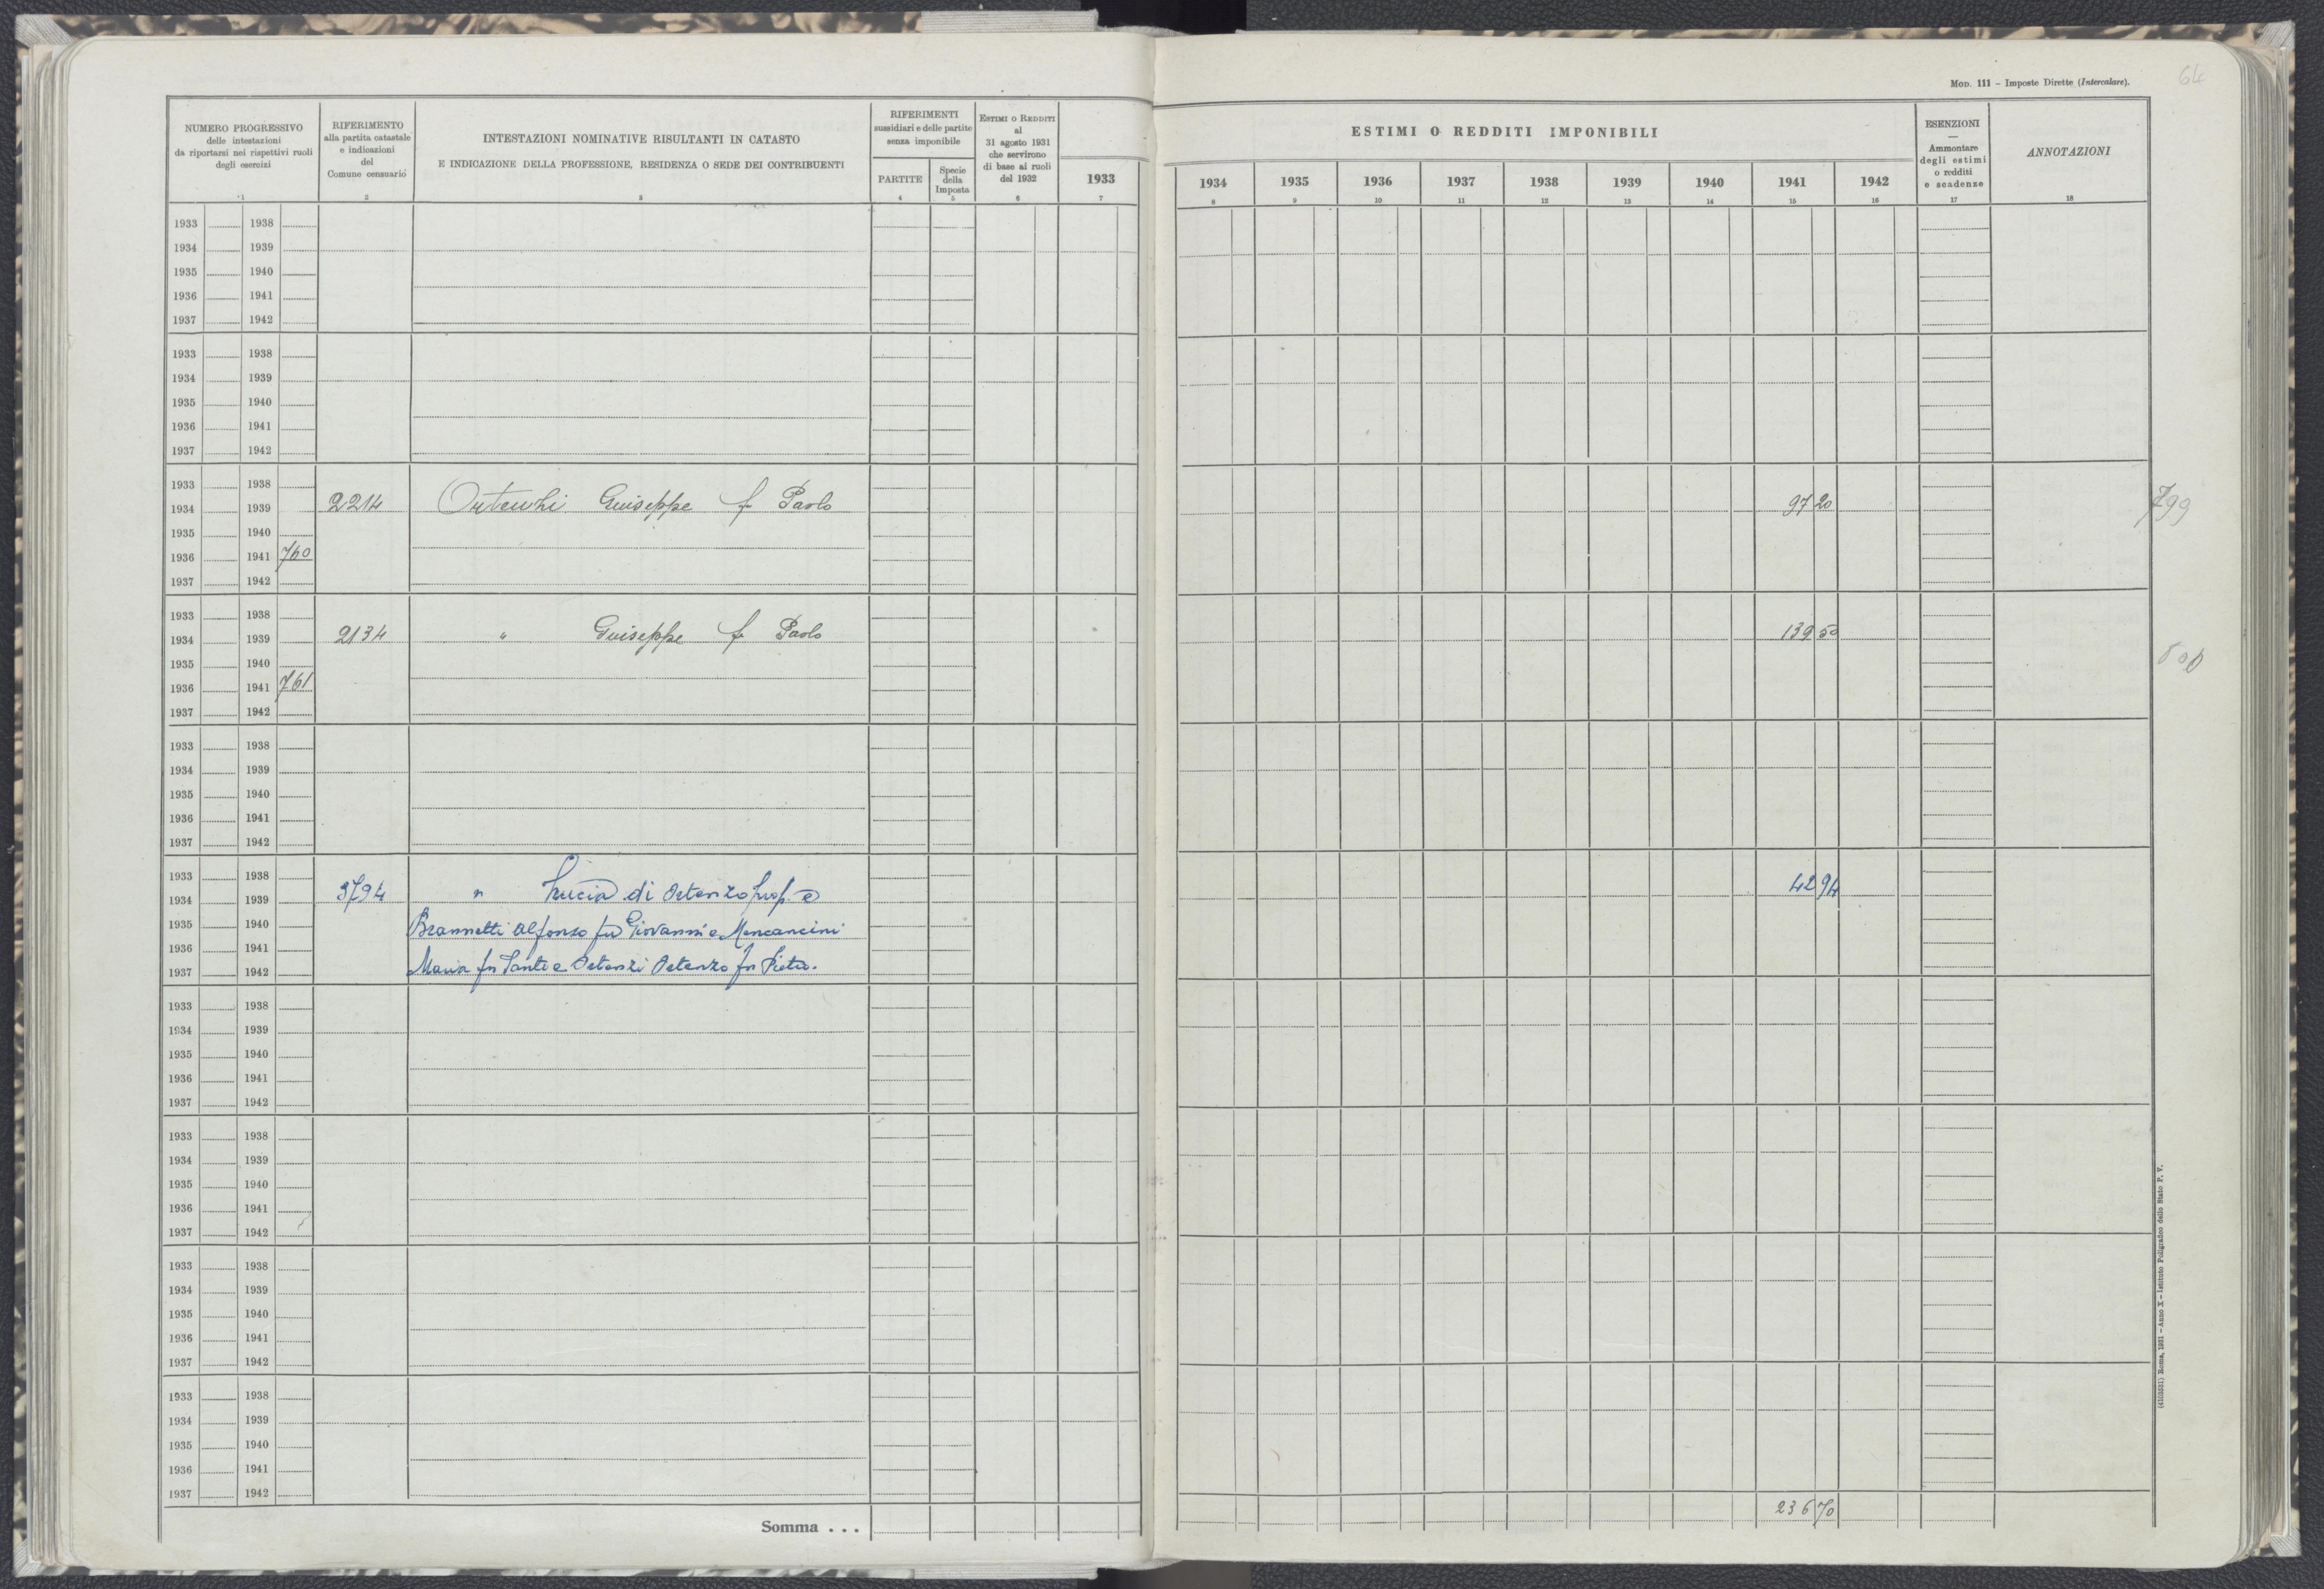 Mod. 111 – Imposte Dirette (Intercalare).
64
NUMERO PROGRESSIVO
delle intestazioni
da riportarsi nei rispettivi ruoli
degli esercizi
1
RIFERIMENTO
alla partita catastale
e indicazioni
del
Comune censuario
2
INTESTAZIONI NOMINATIVE RISULTANTI IN CATASTO
E INDICAZIONE DELLA PROFESSIONE, RESIDENZA O SEDE DEI CONTRIBUENTI
3
RIFERIMENTI
sussidiari e delle partite
senza imponibile
PARTITE
4
Specie
della
Imposta
5
Estimi o Redditi
al
31 agosto 1931
che servirono
di base ai ruoli
del 1932
6
1933
7
ESTIMI O REDDITI IMPONIBILI
1934 1935 1936 1937 1938 1939 1940 1941 1942
8 9 10 11 12 13 14 15 16
ESENZIONI
—
Ammontare
degli estimi
o redditi
e scadenze
17
ANNOTAZIONI
18
1933 1938
1934 1939
1935 1940
1936 1941
1937 1942
1933 1938
1934 1939
1935 1940
1936 1941
1937 1942
1933 1938
1934 1939 2214 Giuseppe f Paolo 97 20 799
1935 1940
1936 1941 760
1937 1942
1933 1938
1934 1939 2134 " Giuseppe f Paolo 139 50
1935 1940
1936 1941 761
1937 1942
1933 1938
1934 1939
1935 1940
1936 1941
1937 1942
1933 1938
1934 1939 3794 " Lucia di Ortenzo prop. e 42 94
1935 1940 Brannetti Alfonso fu Giovanni e Mencancini
1936 1941
1937 1942 Maria fu Sante e Ortenzi Ortenzo fu Pietro.
1933 1938
1934 1939
1935 1940
1936 1941
1937 1942
1933 1938
1934 1939
1935 1940
1936 1941
1937 1942
1933 1938
1934 1939
1935 1940
1936 1941
1937 1942
1933 1938
1934 1939
1935 1940
1936 1941
1937 1942
Somma . . . 236 70
(4103531) Roma, 1931 – Anno X – Istituto Poligrafico dello Stato P. V.